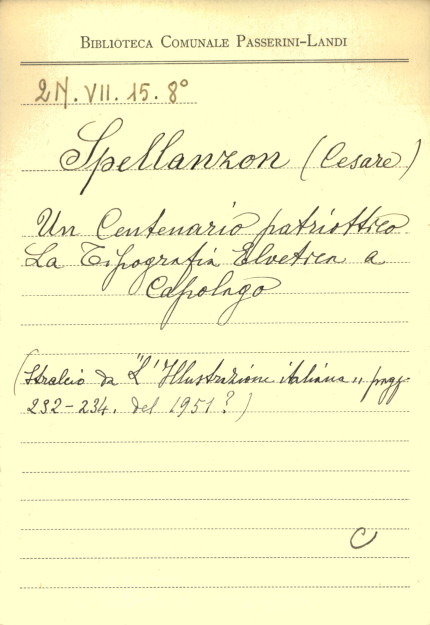 BIBLIOTECA COMUNALE PASSERINI-LANDI
2N. VII. 15. 8°
Spellanzon (Cesare)
Un Centenario patriottico
La Tipografia Elvetica a
Capolago
(Stralcio da "L'Illustrazione italiana" pagg.
232-234. del 1951?)
C